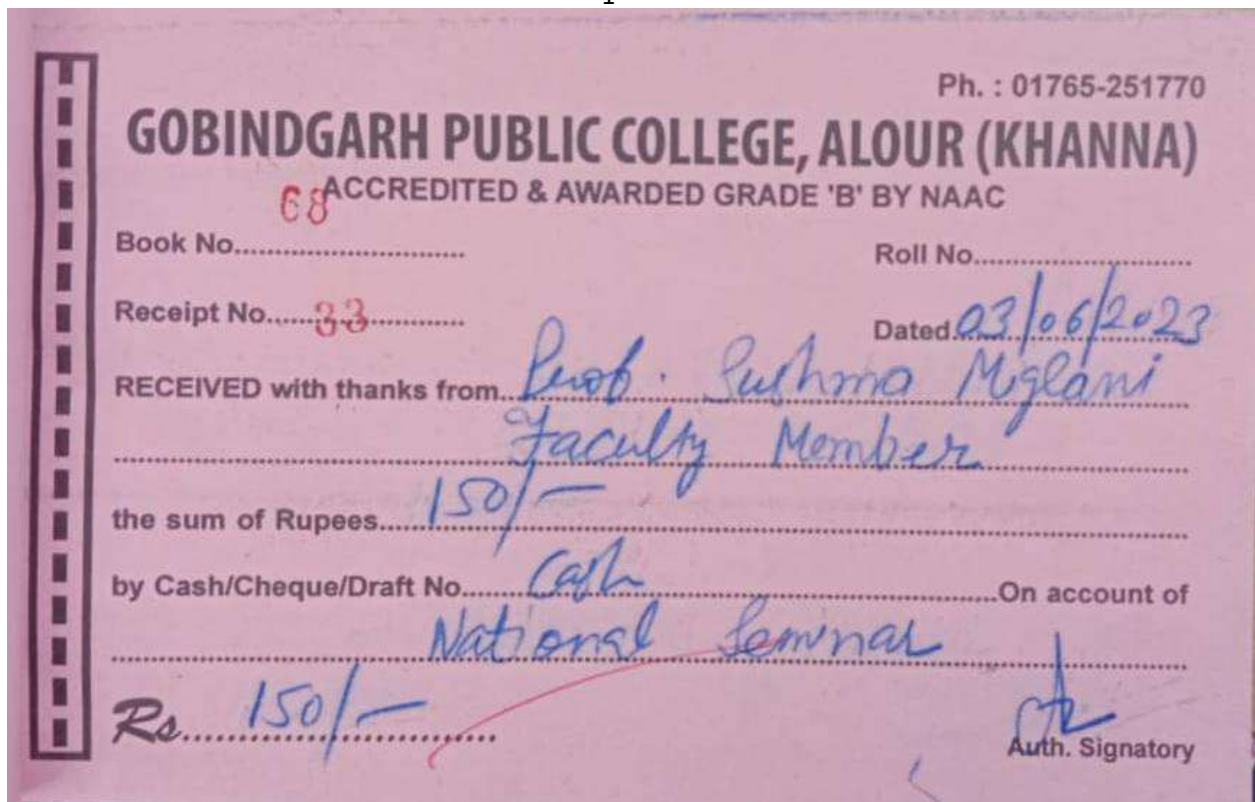 Ph. : 01765-251770
GOBINDGARH PUBLIC COLLEGE, ALOUR (KHANNA)
ACCREDITED & AWARDED GRADE 'B' BY NAAC
Book No. 68
Roll No.
Receipt No. 33
Dated 03/06/2023
RECEIVED with thanks from Prof. Sushma Miglani
Faculty Member
the sum of Rupees 150/-
by Cash/Cheque/Draft No. Cash On account of
National Seminar
Rs. 150/-
Auth. Signatory